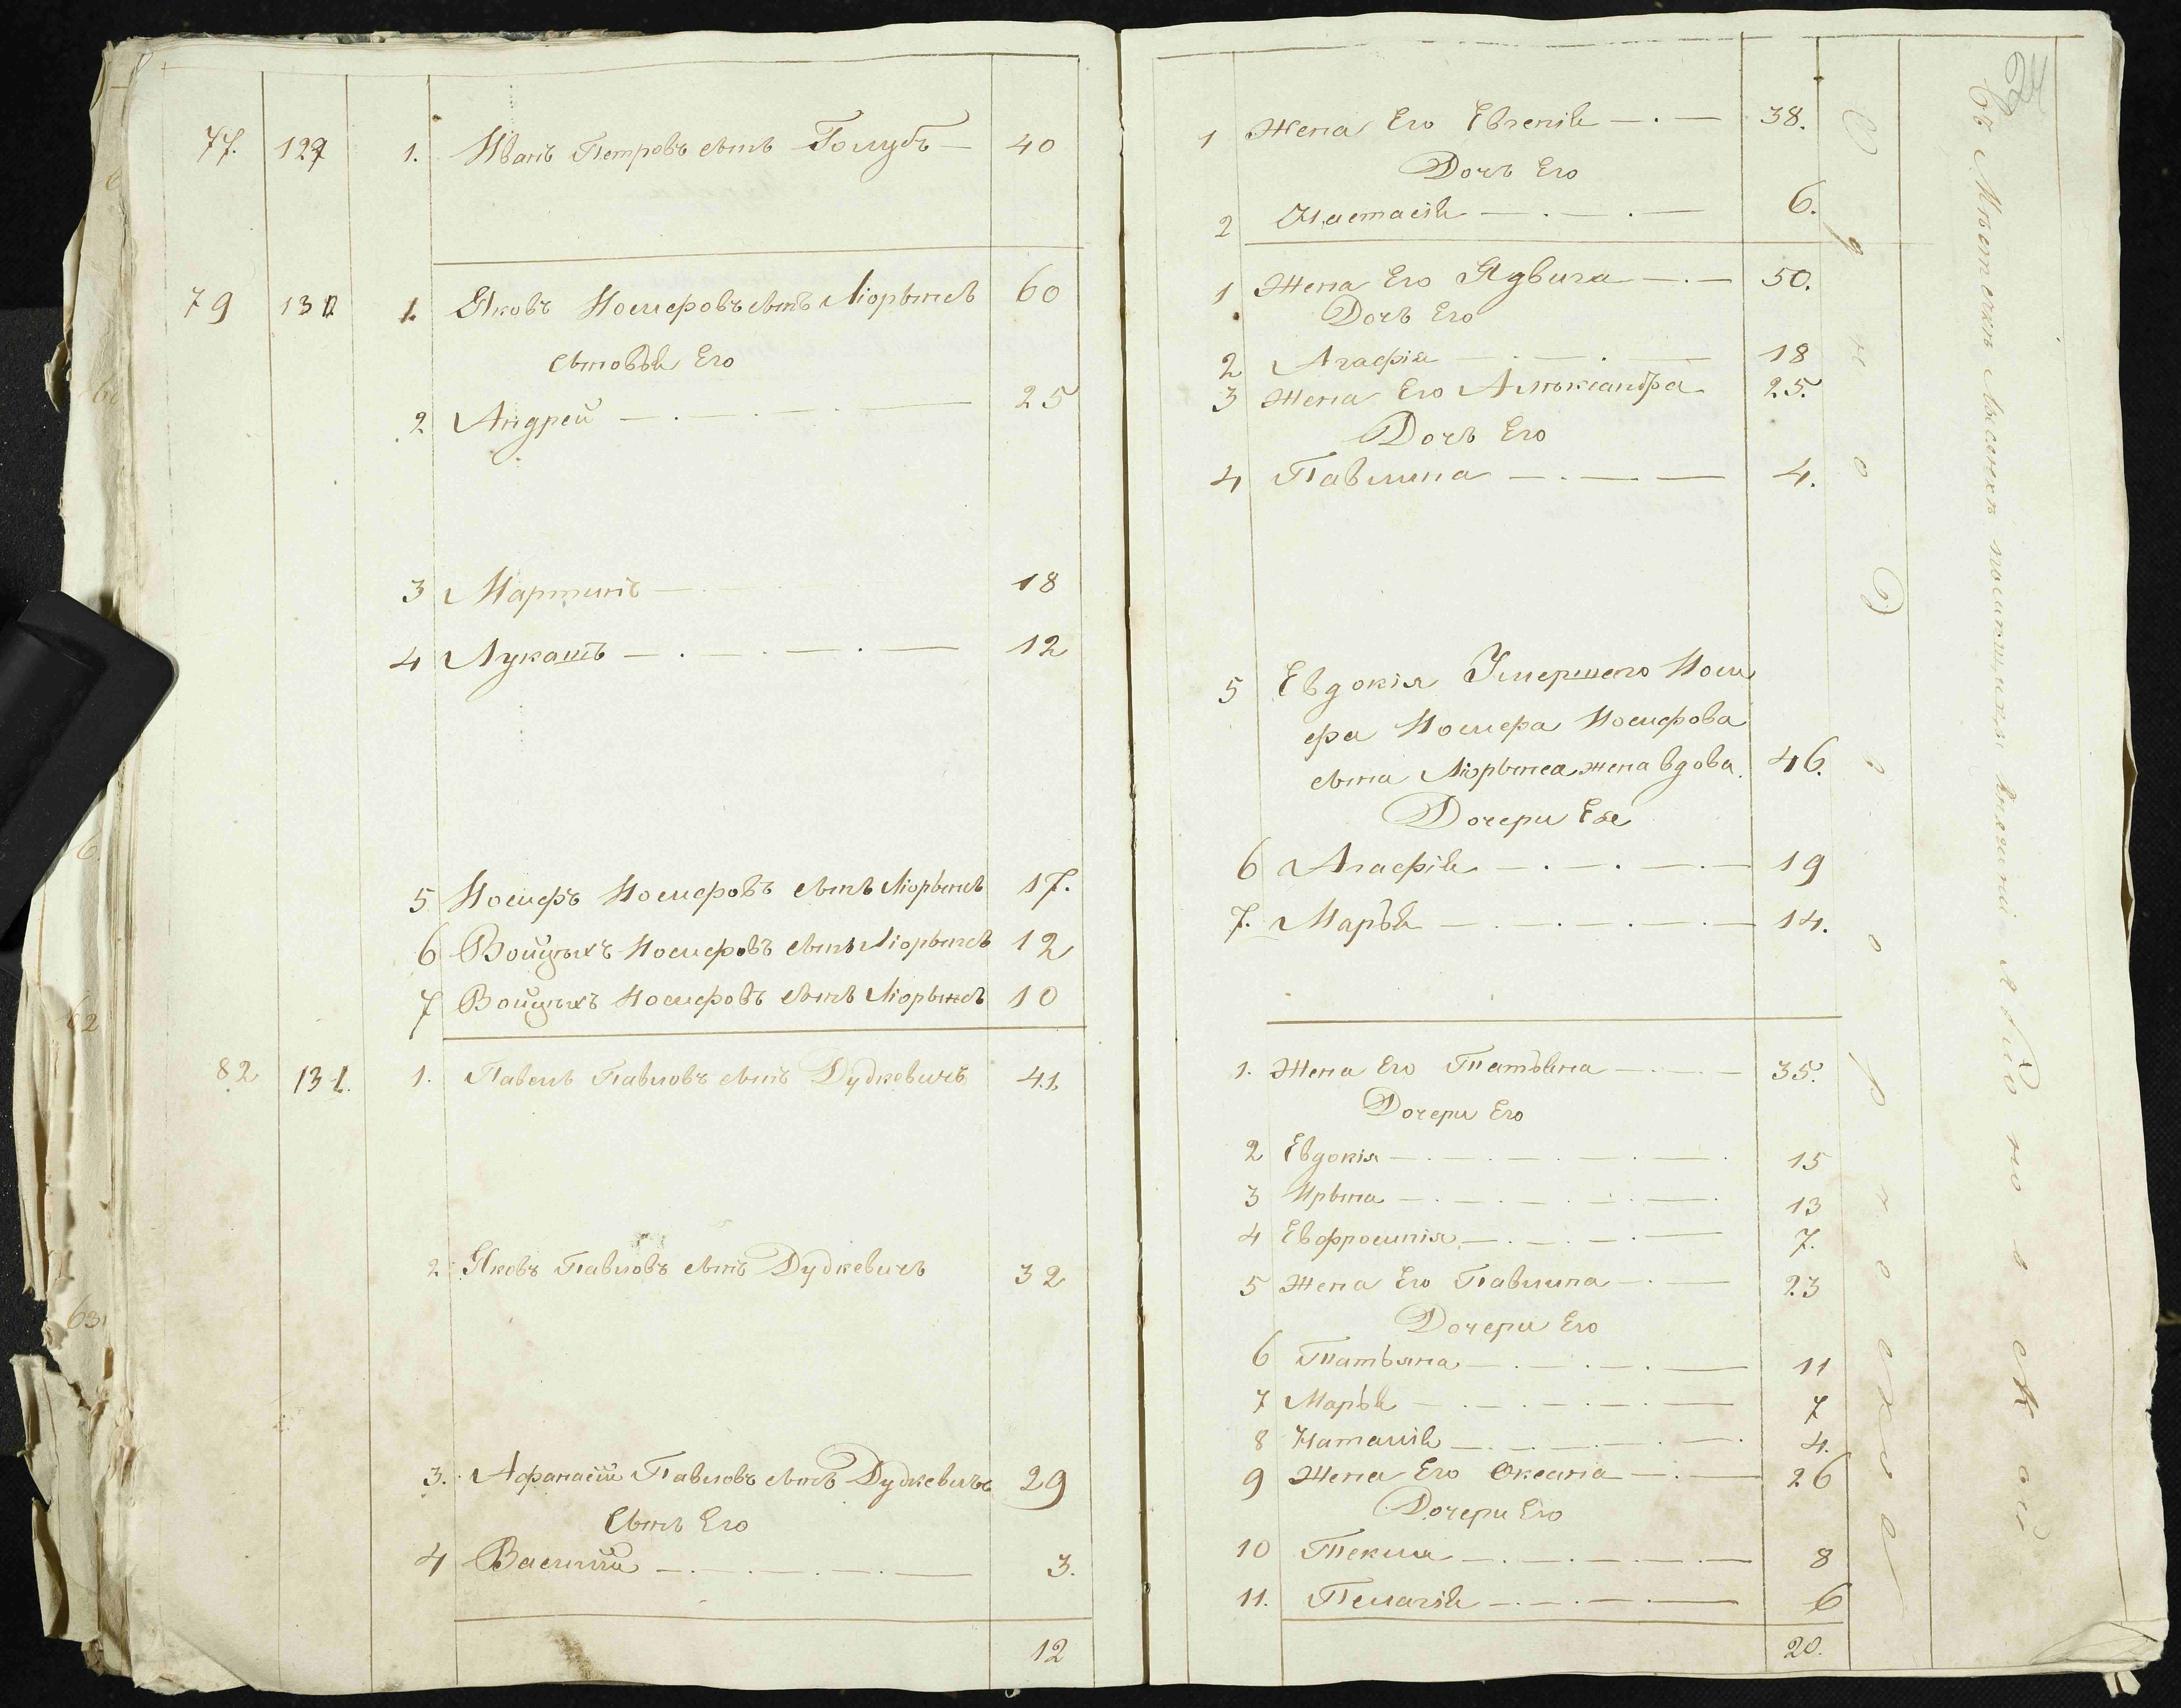 77. 129 1. Иванъ Петровъ сынъ Голубъ — 40
79 130 1. Яковъ Иосифовъ сынъ 60
сыновья Его
2 Андрей 25
3 Мартинъ 18
4 Лукашъ 12
5 Иосифъ Иосифовъ сынъ 17.
6 Войцѣхъ Иосифовъ сынъ 12
7 Войцѣхъ Иосифовъ сынъ 10
82 131. 1. Павелъ Павловъ сынъ Дудкевичъ 41.
2 Яковъ Павловъ сынъ Дудкевичъ 32
3. Афанасій Павловъ сынъ Дудкевичъ 29
Сынъ Его
4 Василій 3.
12
1 Жена Его Евгенія 38.
Дочь Его
2 Настасія 6.
1 Жена Его Ядвига 50.
Дочь Его
2 Агафія 18
3 Жена Его Алѣксандра 25.
Дочь Его
4 Павлина 4.
5 Евдокія Умершего Иоси
фа Иосифа Иосифова
сына жена вдова. 46.
Дочери Ее
6 Агафія 19
7. Марья 14.
1. Жена Его Татьяна 35.
Дочери Его
2 Евдокія 15
3 Ирына 13
4 Евфросинія 7.
5 Жена Его Павлина 23
Дочери Его
6 Татьяна 11
7 Марья 7
8 Наталія 4.
9 Жена Его Оксана 26
Дочери Его
10 Текля 8
11. Пелагія 6
20.